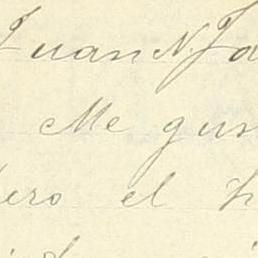 Juan N. Ja
Me gus
pero el h